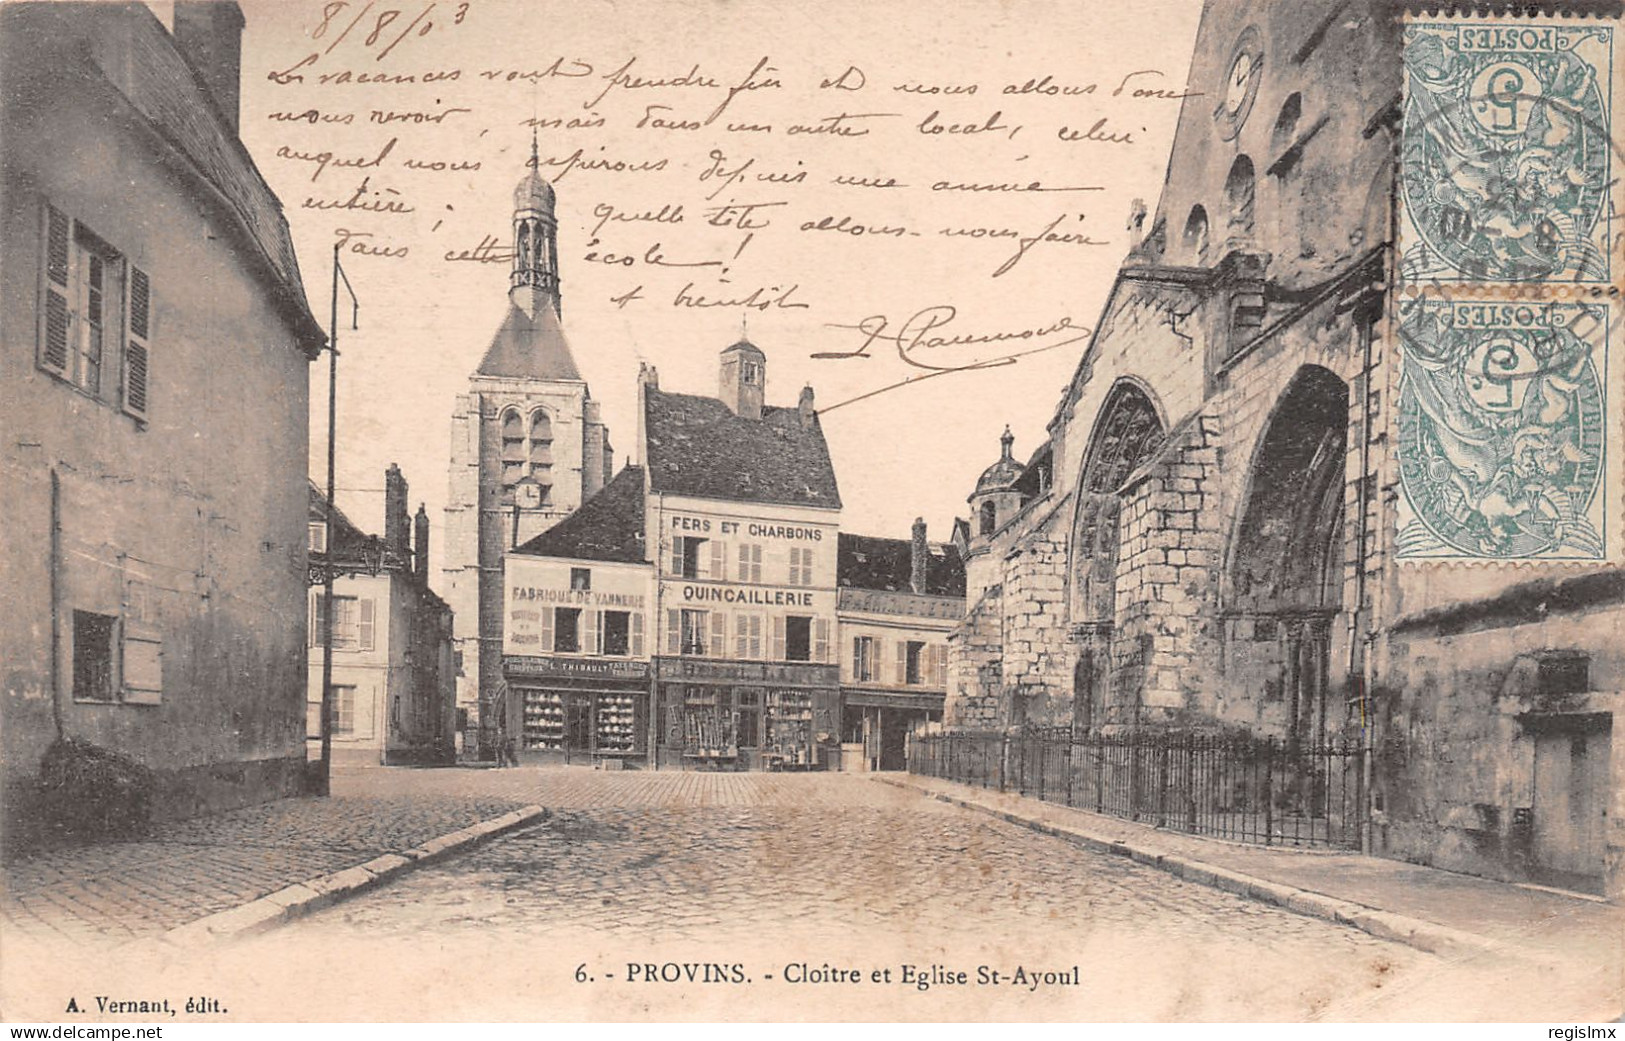 8/8/03
Les vacances vont prendre fin et nous allons donc
nous revoir, mais dans un autre local, celui
auquel nous aspirons depuis une année
entière ; quelle tête allons-nous faire
dans cette école !
A bientôt
Chaumont
POSTES
5
POSTES
5
FERS ET CHARBONS
QUINCAILLERIE
FABRIQUE DE VANNERIE
L. THIBAULT
6. - PROVINS. - Cloître et Eglise St-Ayoul
A. Vernant, édit.
www.delcampe.net
regislmx